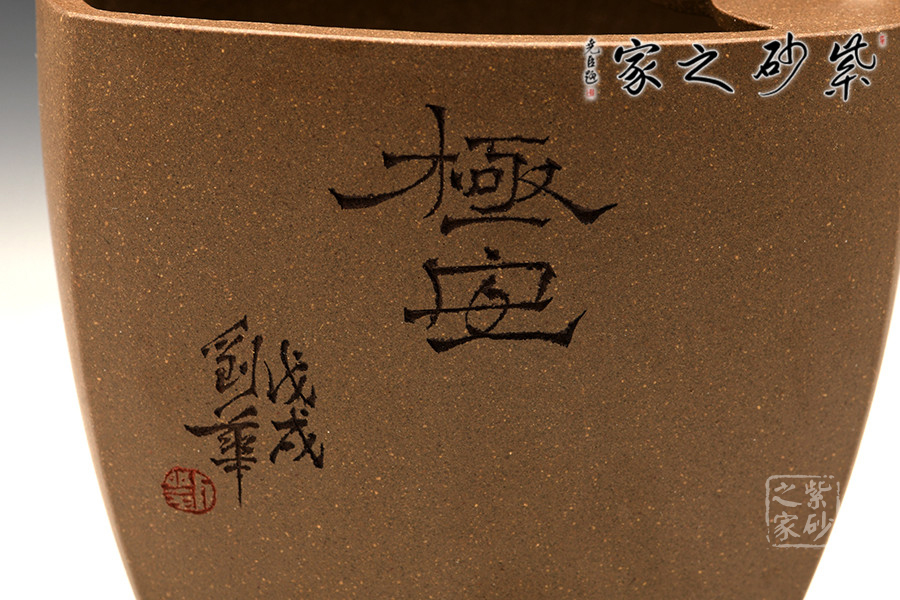 紫砂之家
極
戊戌
劉華
紫砂
之家